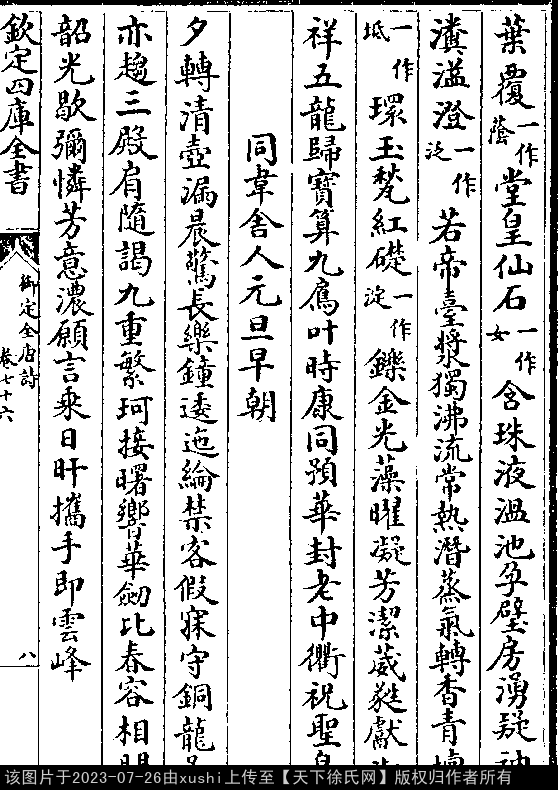 葉覆一作蔭堂皇仙石一作女含珠液溫池孕璧房湧疑神
瀵溢澄一作泛若帝臺漿獨沸流常熱潛蒸氣轉香青壇
一作坻環玉甃紅礎一作淀鑠金光藻曜凝芳潔葳蕤獻
祥五龍歸寶算九扈叶時康同預華封老中衢祝聖皇
同韋舍人元旦早朝
夕轉清壺漏晨驚長樂鐘逶迤綸禁客假寐守銅龍
亦趨三殿肩隨謁九重繁珂接曙響華劒比春容相
韶光歇彌憐芳意濃願言乘日旰攜手即雲峰
欽定四庫全書
御定全唐詩
卷七十六
八
该图片于2023-07-26由xushi上传至【天下徐氏网】版权归作者所有